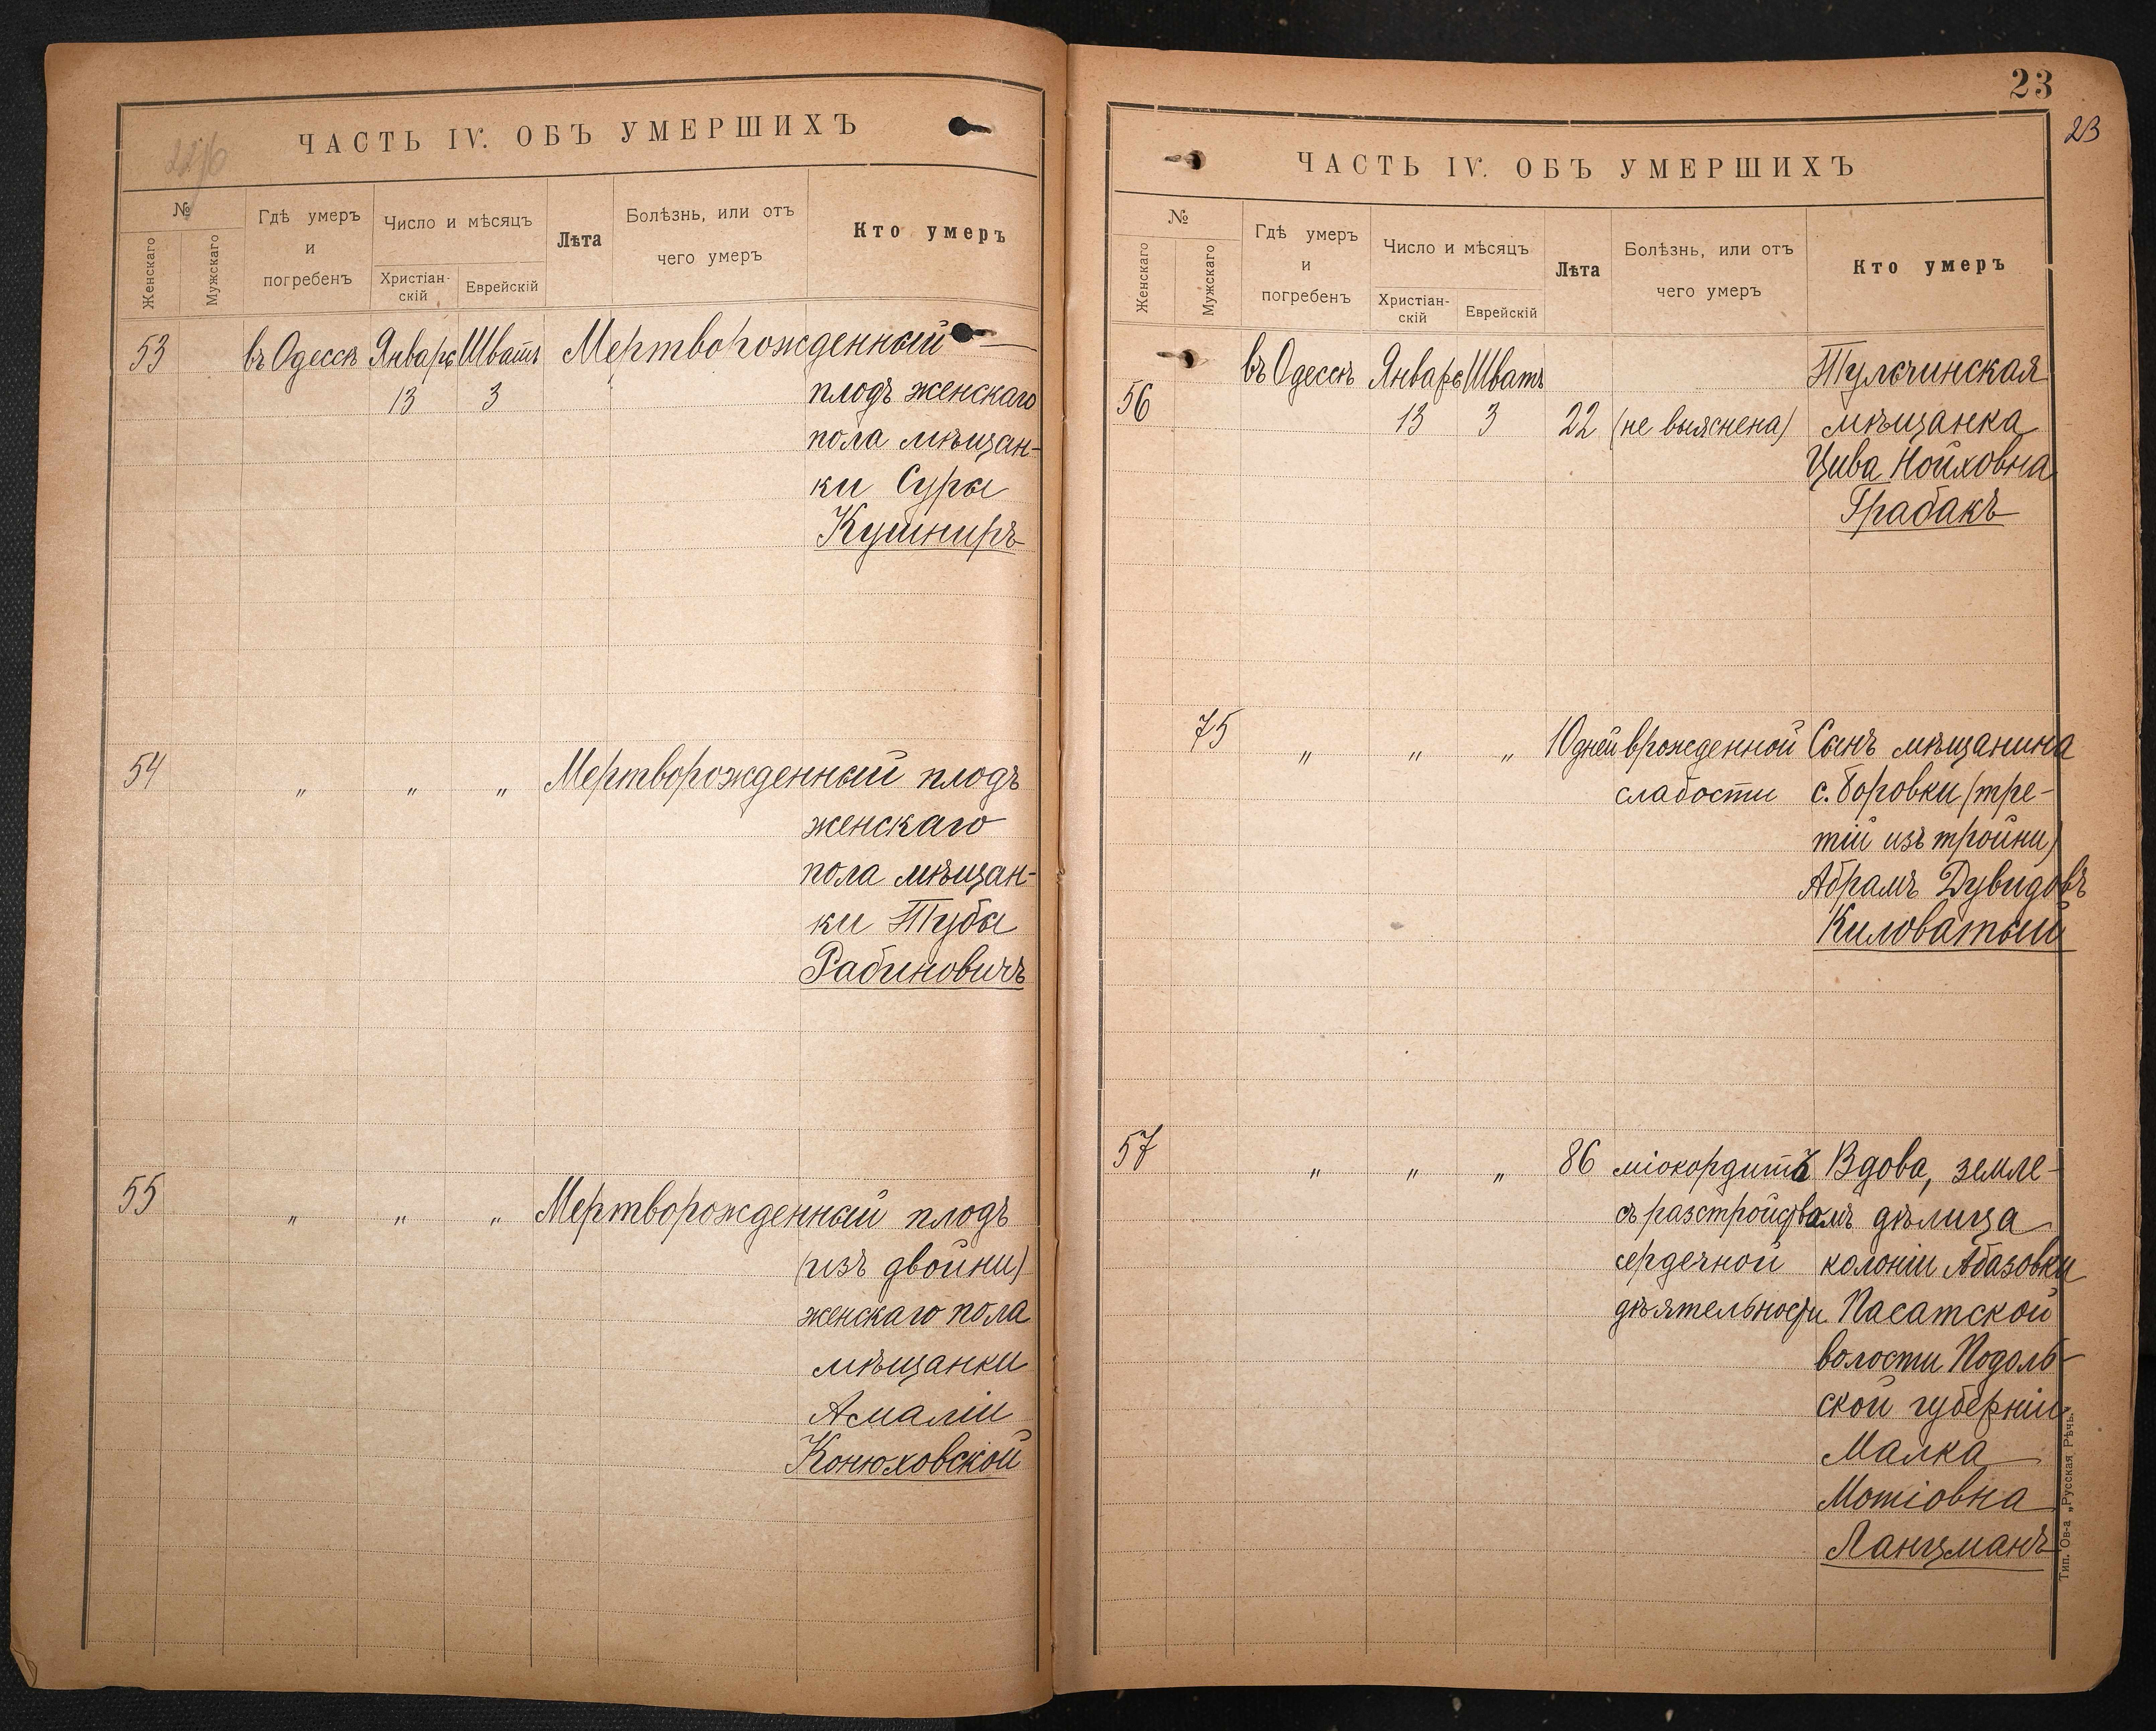 ЧАСТЬ IV. ОБЪ УМЕРШИХЪ
№
Женскаго
Мужскаго
Гдѣ умеръ
и
погребенъ
Число и мѣсяцъ
Христіан-
скій
Еврейскій
Лѣта
Болѣзнь, или отъ
чего умеръ
Кто умеръ
53 въ Одессѣ Январь Шватъ Мертворожденный
13 3 плодъ женскаго
пола мѣщан-
ки Суры
Кушниръ
54 " " " Мертворожденный плодъ
женскаго
пола мѣщан-
ки Тубы
Рабиновичъ
55 " " " Мертворожденный плодъ
(изъ двойни)
женскаго пола
мѣщанки
Амаліи
Конюховской
23
23
ЧАСТЬ IV. ОБЪ УМЕРШИХЪ
№
Женскаго
Мужскаго
Гдѣ умеръ
и
погребенъ
Число и мѣсяцъ
Христіан-
скій
Еврейскій
Лѣта
Болѣзнь, или отъ
чего умеръ
Кто умеръ
въ Одессѣ Январь Шватъ Тульчинская
56 13 3 22 (не выяснена) мѣщанка
Цива Нойховна
Грабакъ
75 " " " 10 дней врожденной Сынъ мѣщанина
слабости с. Боровки (тре-
тій изъ тройни)
Абрамъ Дувидовъ
Киловатый
57 " " " 86 міокордитъ Вдова, земле-
съ разстройствомъ дѣлица
сердечной колоніи Абазовки
дѣятельности Пасатской
волости Подоль-
ской губерніи
Малка
Мотіовна
Ланцманъ
Тип. Ов-а „Русская Рѣчь."